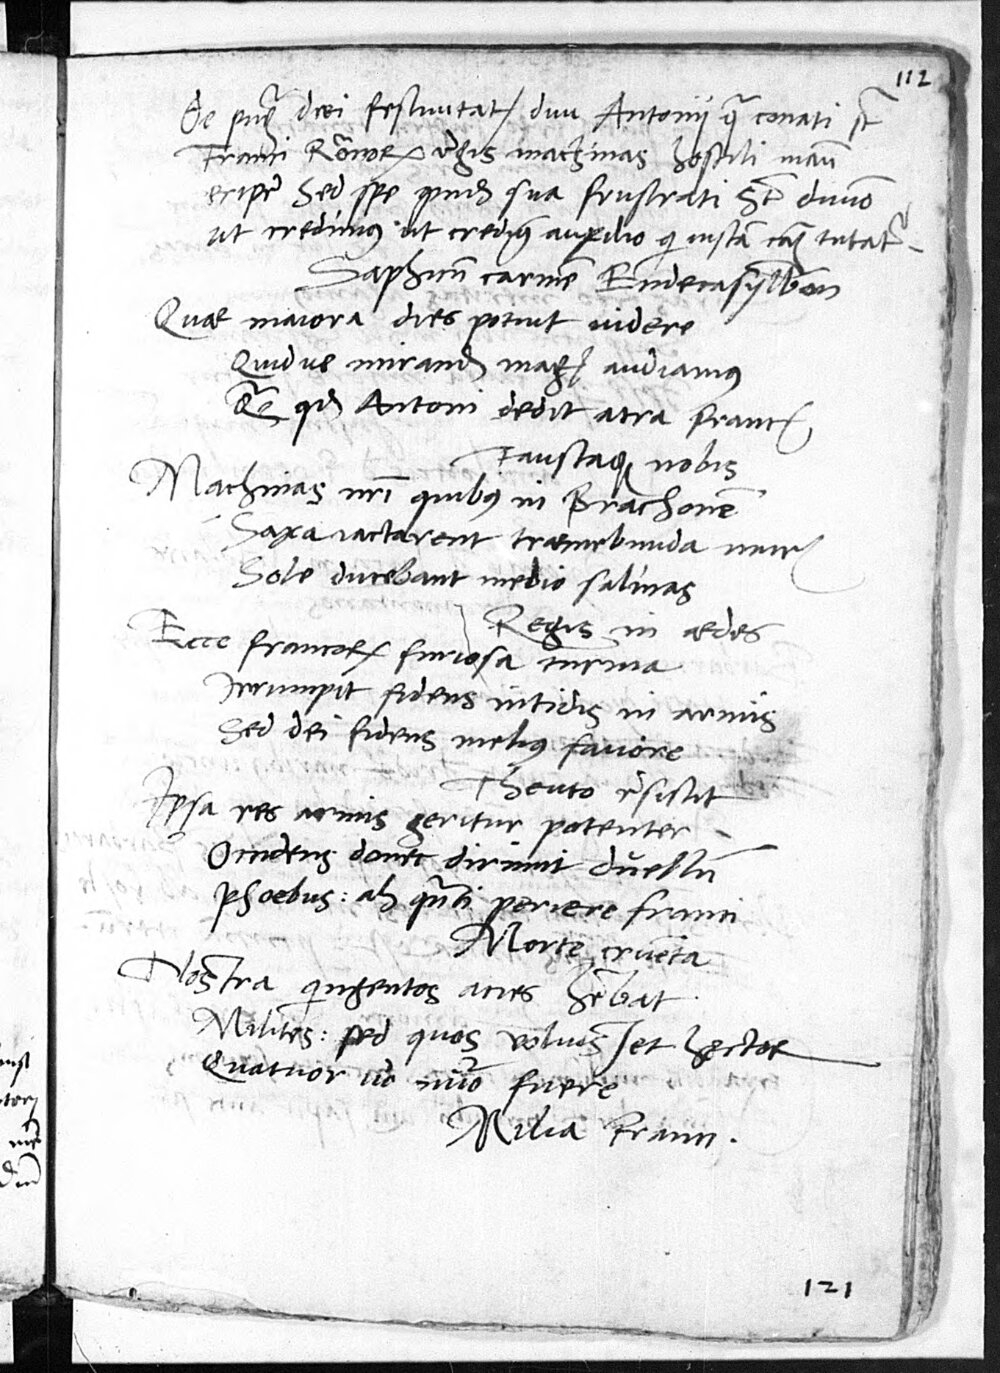 112
De pugna diei festivitatis divi Antonij qua conati sunt
Franci Romanorum regis machinas hostili manu
eripere sed spe quidem sua frustrati sunt divino
ut credimus ut credimus auxilio qui iustam causam tutatur
Saphicum carmen Endecasyllabon
Quae maiora dies potuit videre
Quidve mirandum magis audiamus
Quam quod Antoni dedit atra Francis
Faustaque nobis
Machinas nostri quibus in Brachonem
Saxa iactarent tremebunda muris
Sole ducebant medio salinas
Regis in aedes
Ecce francorum furiosa turma
Irrumpit fidens nitidis in armis
Sed dei fidens melius favore
Theuto resistit
Ipsa res armis geritur potenter
Occidens donec dirimit duellum
Phoebus: ah quanti periere franci
Morte cruenta
Nostra quingentos acies habebat
Milites: sed quos voluisset hector
Quatuor vero numero fuere
Milia Franci.
121